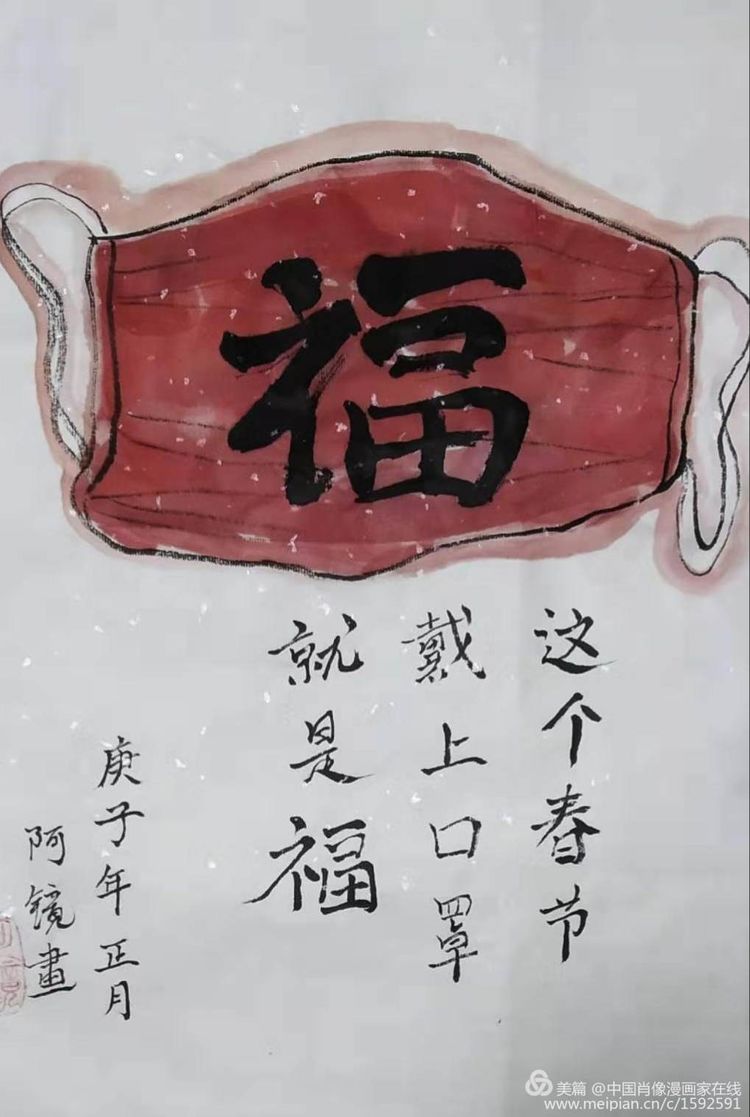 福
这个春节
戴上口罩
就是福
庚子年正月
阿镜畫
美篇 @中国肖像漫画家在线
www.meipian.cn/c/1592591